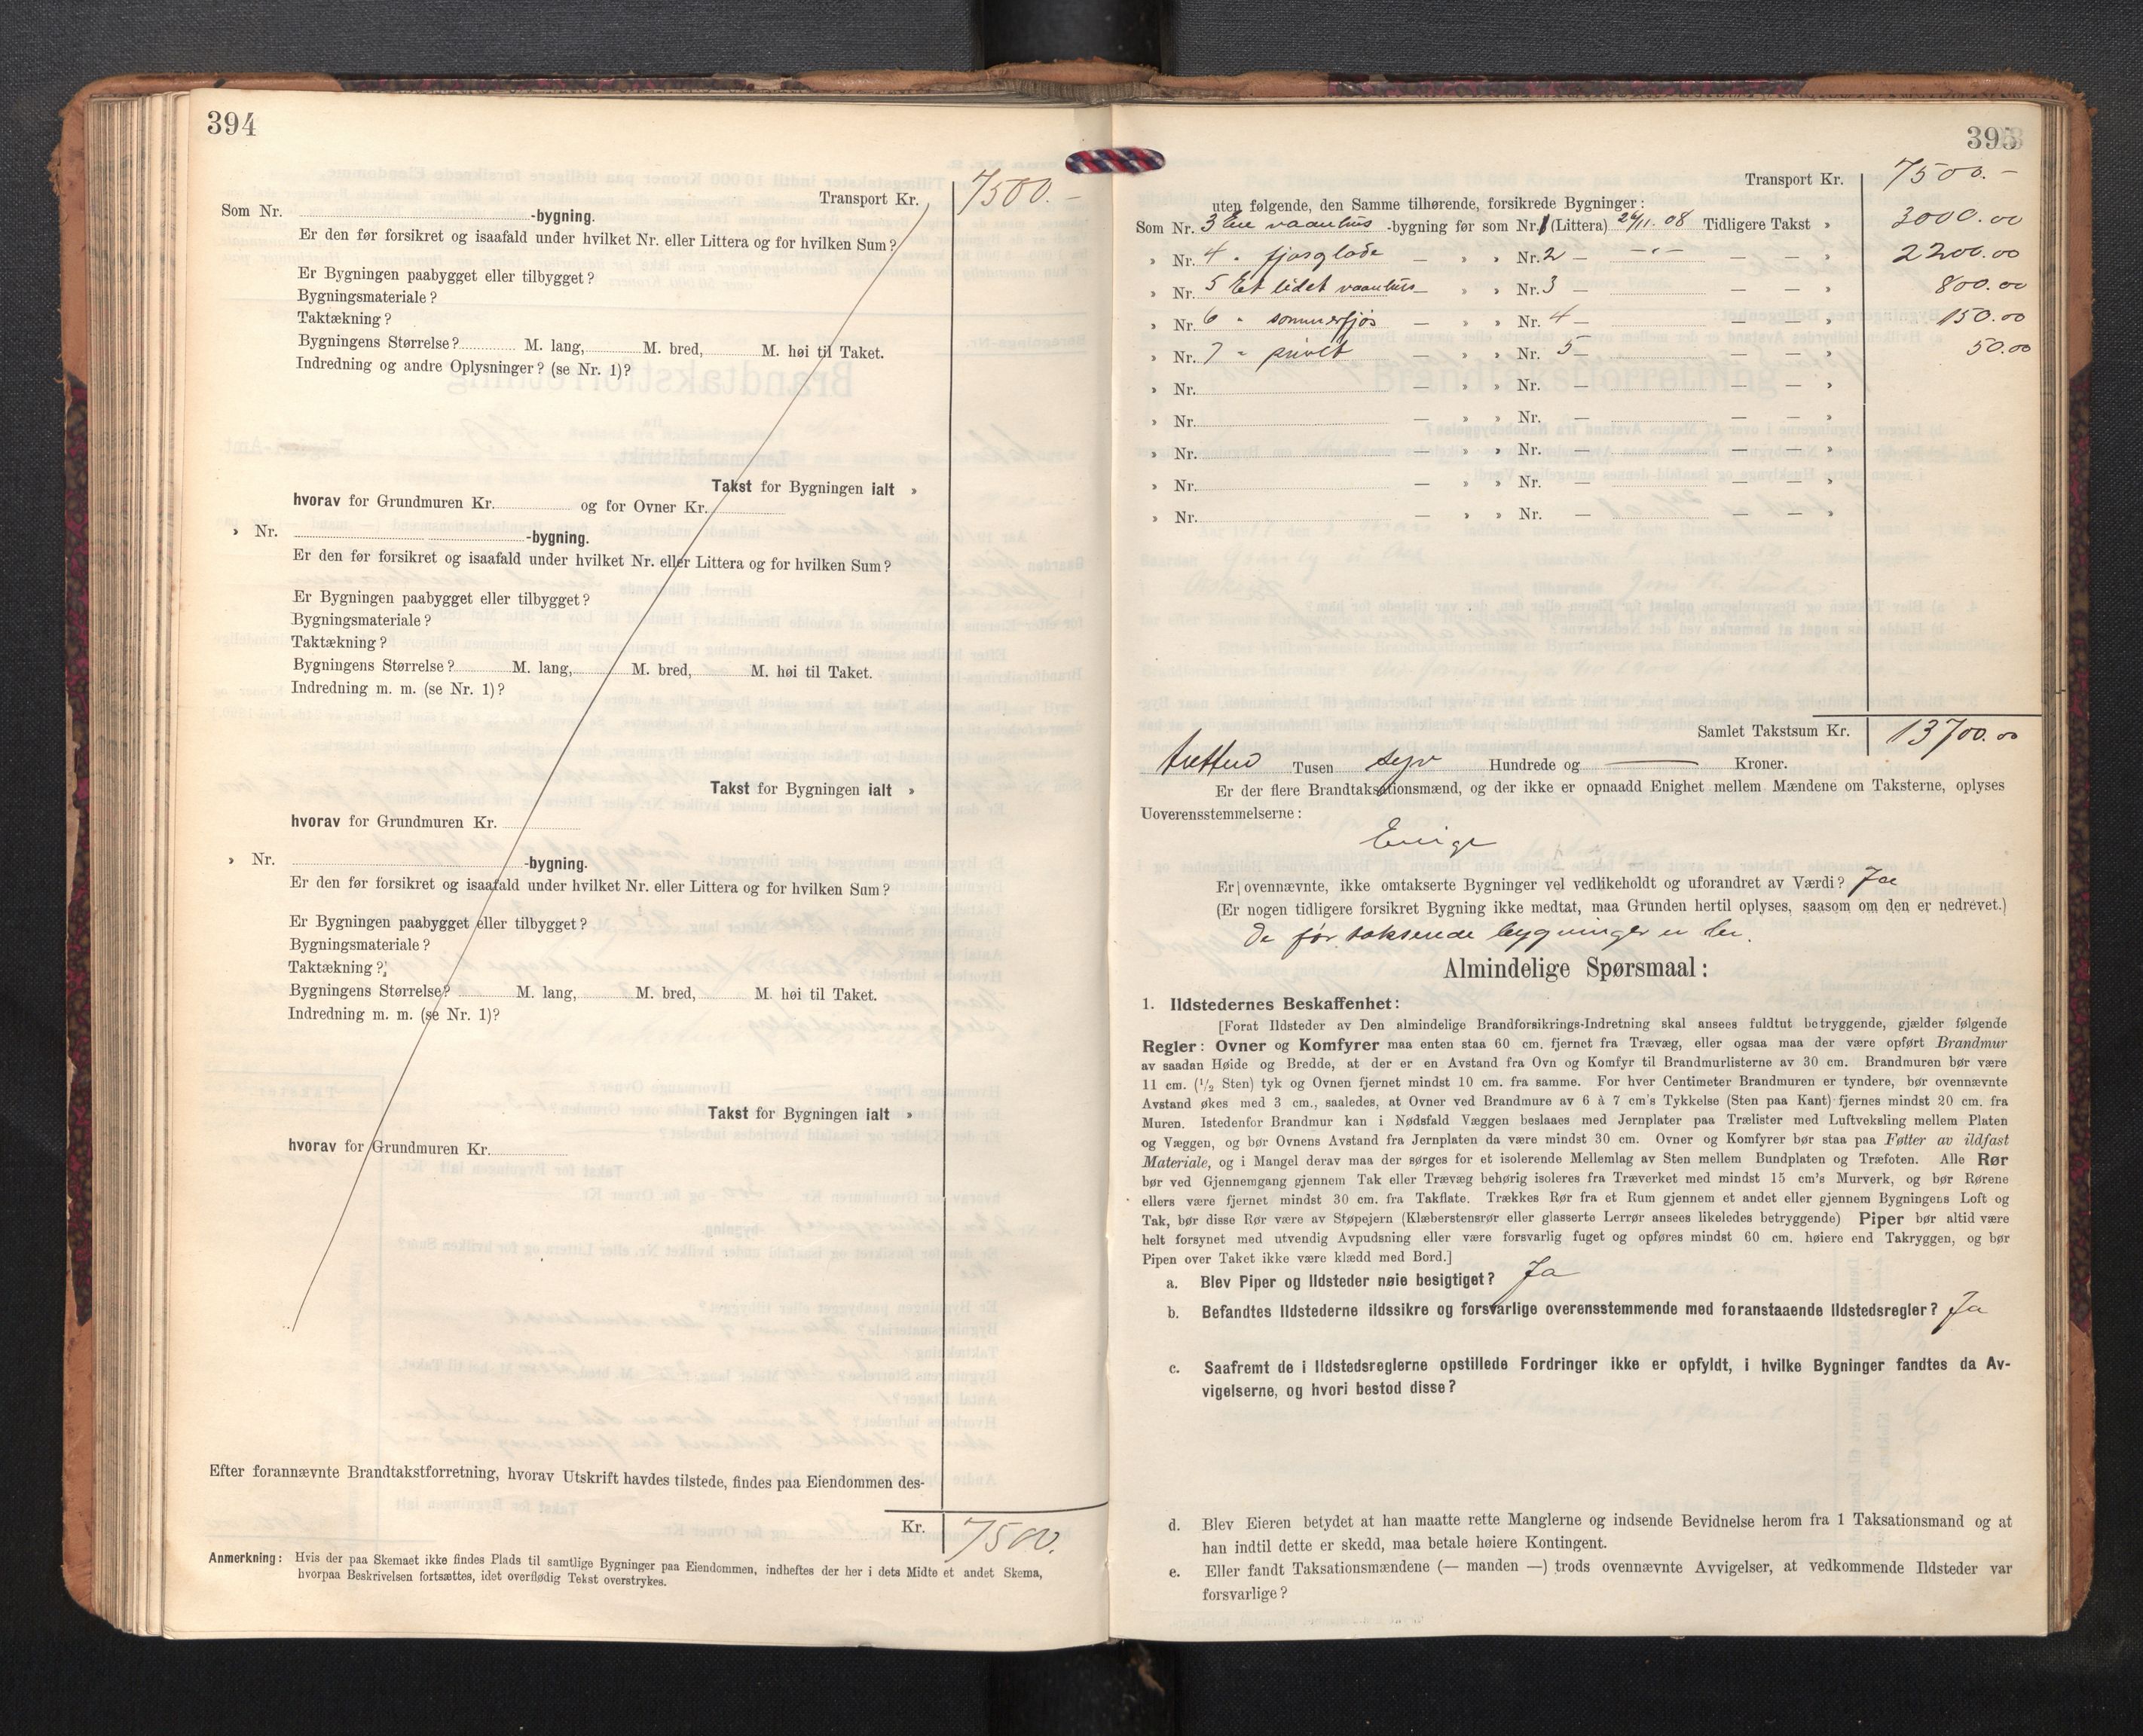 394
Transport Kr. 7500.–
Som Nr. -bygning.
Er den før forsikret og isaafald under hvilket Nr. eller Littera og for hvilken Sum?
Er Bygningen paabygget eller tilbygget?
Bygningsmateriale?
Taktækning?
Bygningens Størrelse? M. lang, M. bred, M. høi til Taket.
Indredning og andre Oplysninger? (se Nr. 1)?
Takst for Bygningen ialt »
hvorav for Grundmuren Kr. og for Ovner Kr.
» Nr. -bygning.
Er den før forsikret og isaafald under hvilket Nr. eller Littera og for hvilken Sum?
Er Bygningen paabygget eller tilbygget?
Bygningsmateriale?
Taktækning?
Bygningens Størrelse? M. lang, M. bred, M. høi til Taket.
Indredning m. m. (se Nr. 1)?
Takst for Bygningen ialt »
hvorav for Grundmuren Kr.
» Nr. -bygning.
Er den før forsikret og isaafald under hvilket Nr. eller Littera og for hvilken Sum?
Er Bygningen paabygget eller tilbygget?
Bygningsmateriale?
Taktækning?
Bygningens Størrelse? M. lang, M. bred, M. høi til Taket.
Indredning m. m. (se Nr. 1)?
Takst for Bygningen ialt »
hvorav for Grundmuren Kr.
Efter forannævnte Brandtakstforretning, hvorav Utskrift havdes tilstede, findes paa Eiendommen des-
Kr. 7500.
Anmerkning: Hvis der paa Skemaet ikke findes Plads til samtlige Bygninger paa Eiendommen, indheftes der her i dets Midte et andet Skema,
hvorpaa Beskrivelsen fortsættes, idet overflødig Tekst overstrykes.
395
Transport Kr. 7500.–
uten følgende, den Samme tilhørende, forsikrede Bygninger:
Som Nr. 3 Ene vaanhus -bygning før som Nr. 1 (Littera) 26/11. 08 Tidligere Takst » 3000.00
» Nr. 4 " fjøsglade — » » Nr. 2 — -"- — — » 2200.00
» Nr. 5 Et lidet vaanhus — » » Nr. 3 — — — » 800.00
» Nr. 6 " sommerfjøs — » » Nr. 4 — — — » 150.00
» Nr. 7 " privet — » » Nr. 5 — — — » 50.00
» Nr. — » » Nr. — — — »
» Nr. — » » Nr. — — — »
» Nr. — » » Nr. — — — »
» Nr. — » » Nr. — — — »
» Nr. — » » Nr. — — — »
Samlet Takstsum Kr. 13700.00
tretten Tusen syv Hundrede og — Kroner.
Er der flere Brandtaksationsmænd, og der ikke er opnaadd Enighet mellem Mændene om Taksterne, oplyses
Uoverensstemmelserne:
Enige
Er ovennævnte, ikke omtakserte Bygninger vel vedlikeholdt og uforandret av Værdi? Ja
(Er nogen tidligere forsikret Bygning ikke medtat, maa Grunden hertil oplyses, saasom om den er nedrevet.)
De før takserede bygninger er der.
Almindelige Spørsmaal:
1. Ildstedernes Beskaffenhet:
[Forat Ildsteder av Den almindelige Brandforsikrings-Indretning skal ansees fuldtut betryggende, gjælder følgende
Regler: Ovner og Komfyrer maa enten staa 60 cm. fjernet fra Trævæg, eller ogsaa maa der være opført Brandmur
av saadan Høide og Bredde, at der er en Avstand fra Ovn og Komfyr til Brandmurlisterne av 30 cm. Brandmuren bør være
11 cm. (1/2 Sten) tyk og Ovnen fjernet mindst 10 cm. fra samme. For hver Centimeter Brandmuren er tyndere, bør ovennævnte
Avstand økes med 3 cm., saaledes, at Ovner ved Brandmure av 6 à 7 cm's Tykkelse (Sten paa Kant) fjernes mindst 20 cm. fra
Muren. Istedenfor Brandmur kan i Nødsfald Væggen beslaaes med Jernplater paa Trælister med Luftveksling mellem Platen
og Væggen, og bør Ovnens Avstand fra Jernplaten da være mindst 30 cm. Ovner og Komfyrer bør staa paa Føtter av ildfast
Materiale, og i Mangel derav maa der sørges for et isolerende Mellemlag av Sten mellem Bundplaten og Træfoten. Alle Rør
bør ved Gjennemgang gjennem Tak eller Trævæg behørig isoleres fra Træverket med mindst 15 cm's Murverk, og bør Rørene
ellers være fjernet mindst 30 cm. fra Takflate. Trækkes Rør fra et Rum gjennem et andet eller gjennem Bygningens Loft og
Tak, bør disse Rør være av Støpejern (Klæberstensrør eller glasserte Lerrør ansees likeledes betryggende) Piper bør altid være
helt forsynet med utvendig Avpudsning eller være forsvarlig fuget og opføres mindst 60 cm. høiere end Takryggen, og bør
Pipen over Taket ikke være klædd med Bord.]
a. Blev Piper og Ildsteder nøie besigtiget? Ja
b. Befandtes Ildstederne ildssikre og forsvarlige overensstemmende med foranstaaende Ildstedsregler? Ja
c. Saafremt de i Ildstedsreglerne opstillede Fordringer ikke er opfyldt, i hvilke Bygninger fandtes da Av-
vigelserne, og hvori bestod disse?
d. Blev Eieren betydet at han maatte rette Manglerne og indsende Bevidnelse herom fra 1 Taksationsmand og at
han indtil dette er skedd, maa betale høiere Kontingent.
e. Eller fandt Taksationsmændene (— manden —) trods ovennævnte Avvigelser, at vedkommende Ildsteder var
forsvarlige?